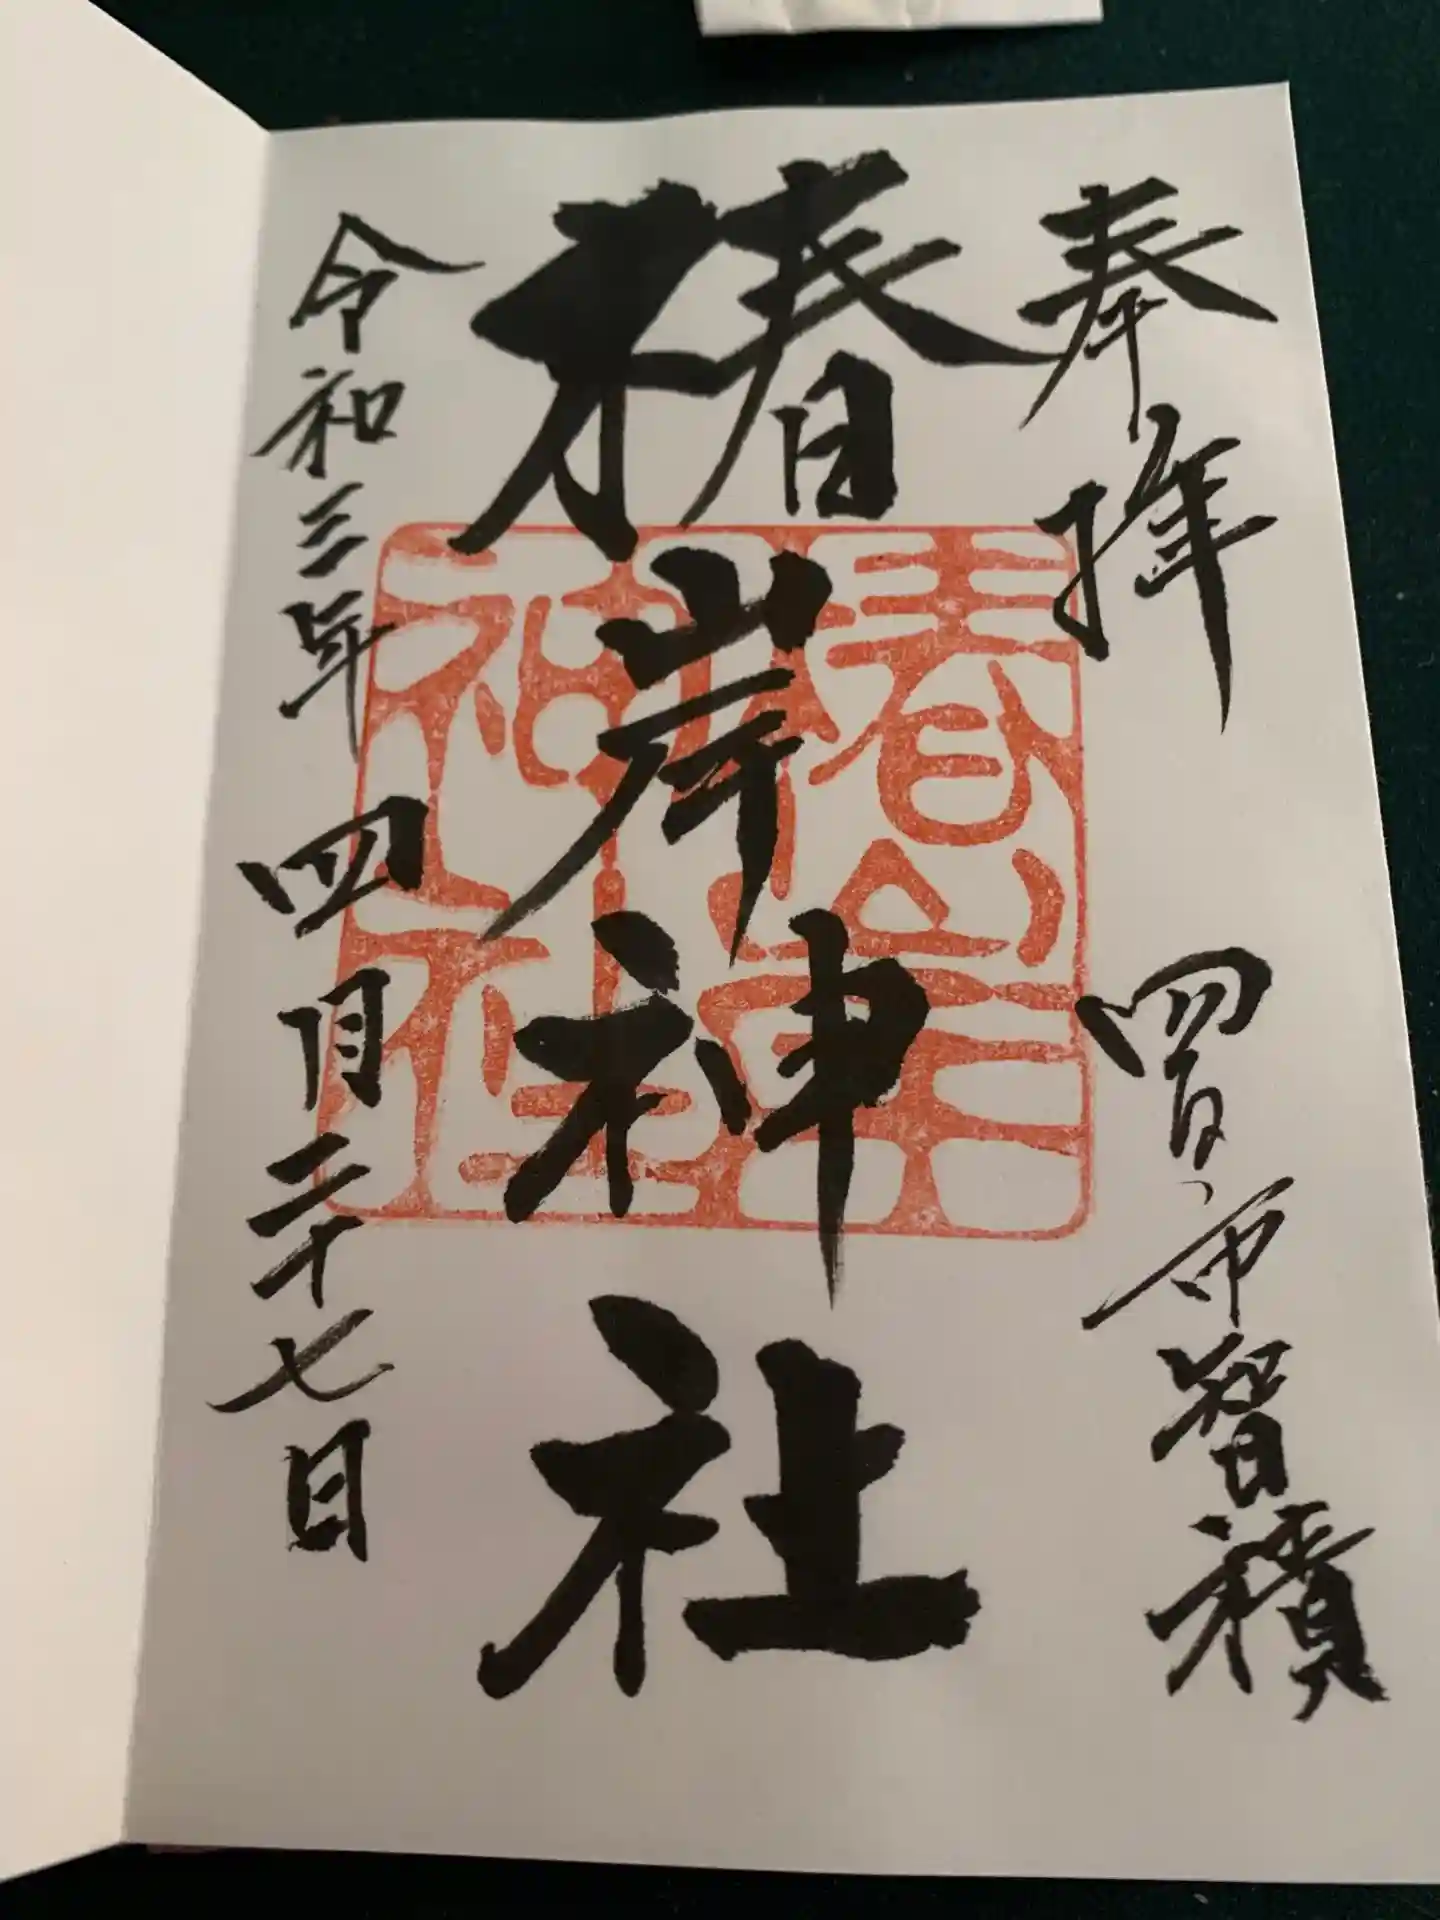 奉拝 四日市智積
椿岸神社
椿岸神社
令和三年四月二十七日